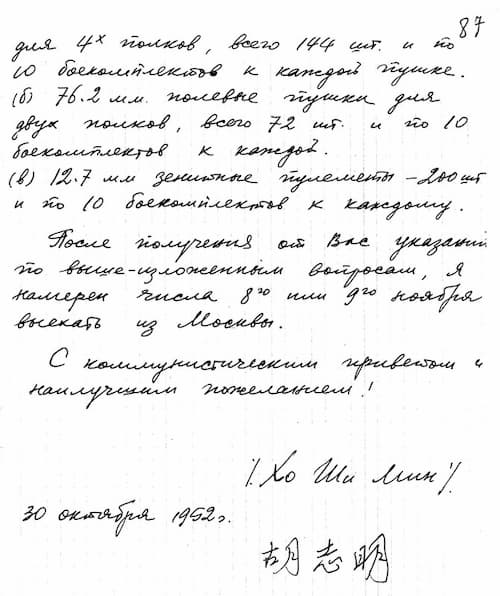 87
для 4х полков, всего 144 шт. и по
10 боекомплектов к каждой пушке.
(б) 76.2 м.м. полевые пушки для
двух полков, всего 72 шт. и по 10
боекомплектов к каждой.
(в) 12.7 мм зенитные пулеметы – 200 шт
и по 10 боекомплектов к каждому.
После получения от Вас указаний
по выше-изложенным вопросам, я
намерен числа 8го или 9го ноября
выехать из Москвы.
С коммунистическим приветом и
наилучшим пожеланием!
/Хо Ши Мин/.
30 октября 1952 г.
胡志明